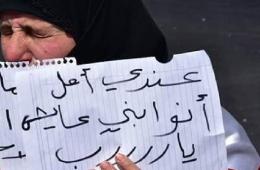 عندي أمل
أنو ابني عايش
يا ررررب